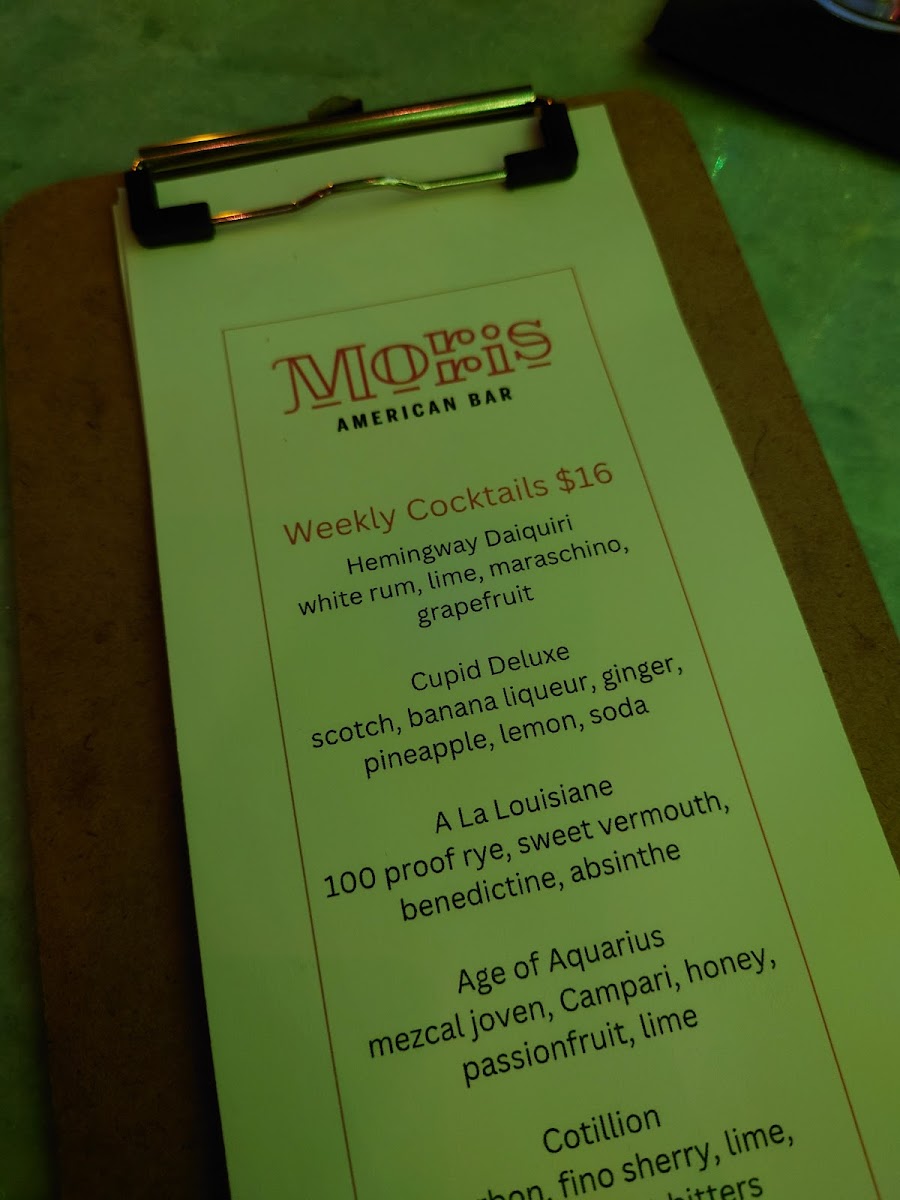 Moris
AMERICAN BAR
Weekly Cocktails $16
Hemingway Daiquiri
white rum, lime, maraschino,
grapefruit
Cupid Deluxe
scotch, banana liqueur, ginger,
pineapple, lemon, soda
A La Louisiane
100 proof rye, sweet vermouth,
benedictine, absinthe
Age of Aquarius
mezcal joven, Campari, honey,
passionfruit, lime
Cotillion
fino sherry, lime,
bitters